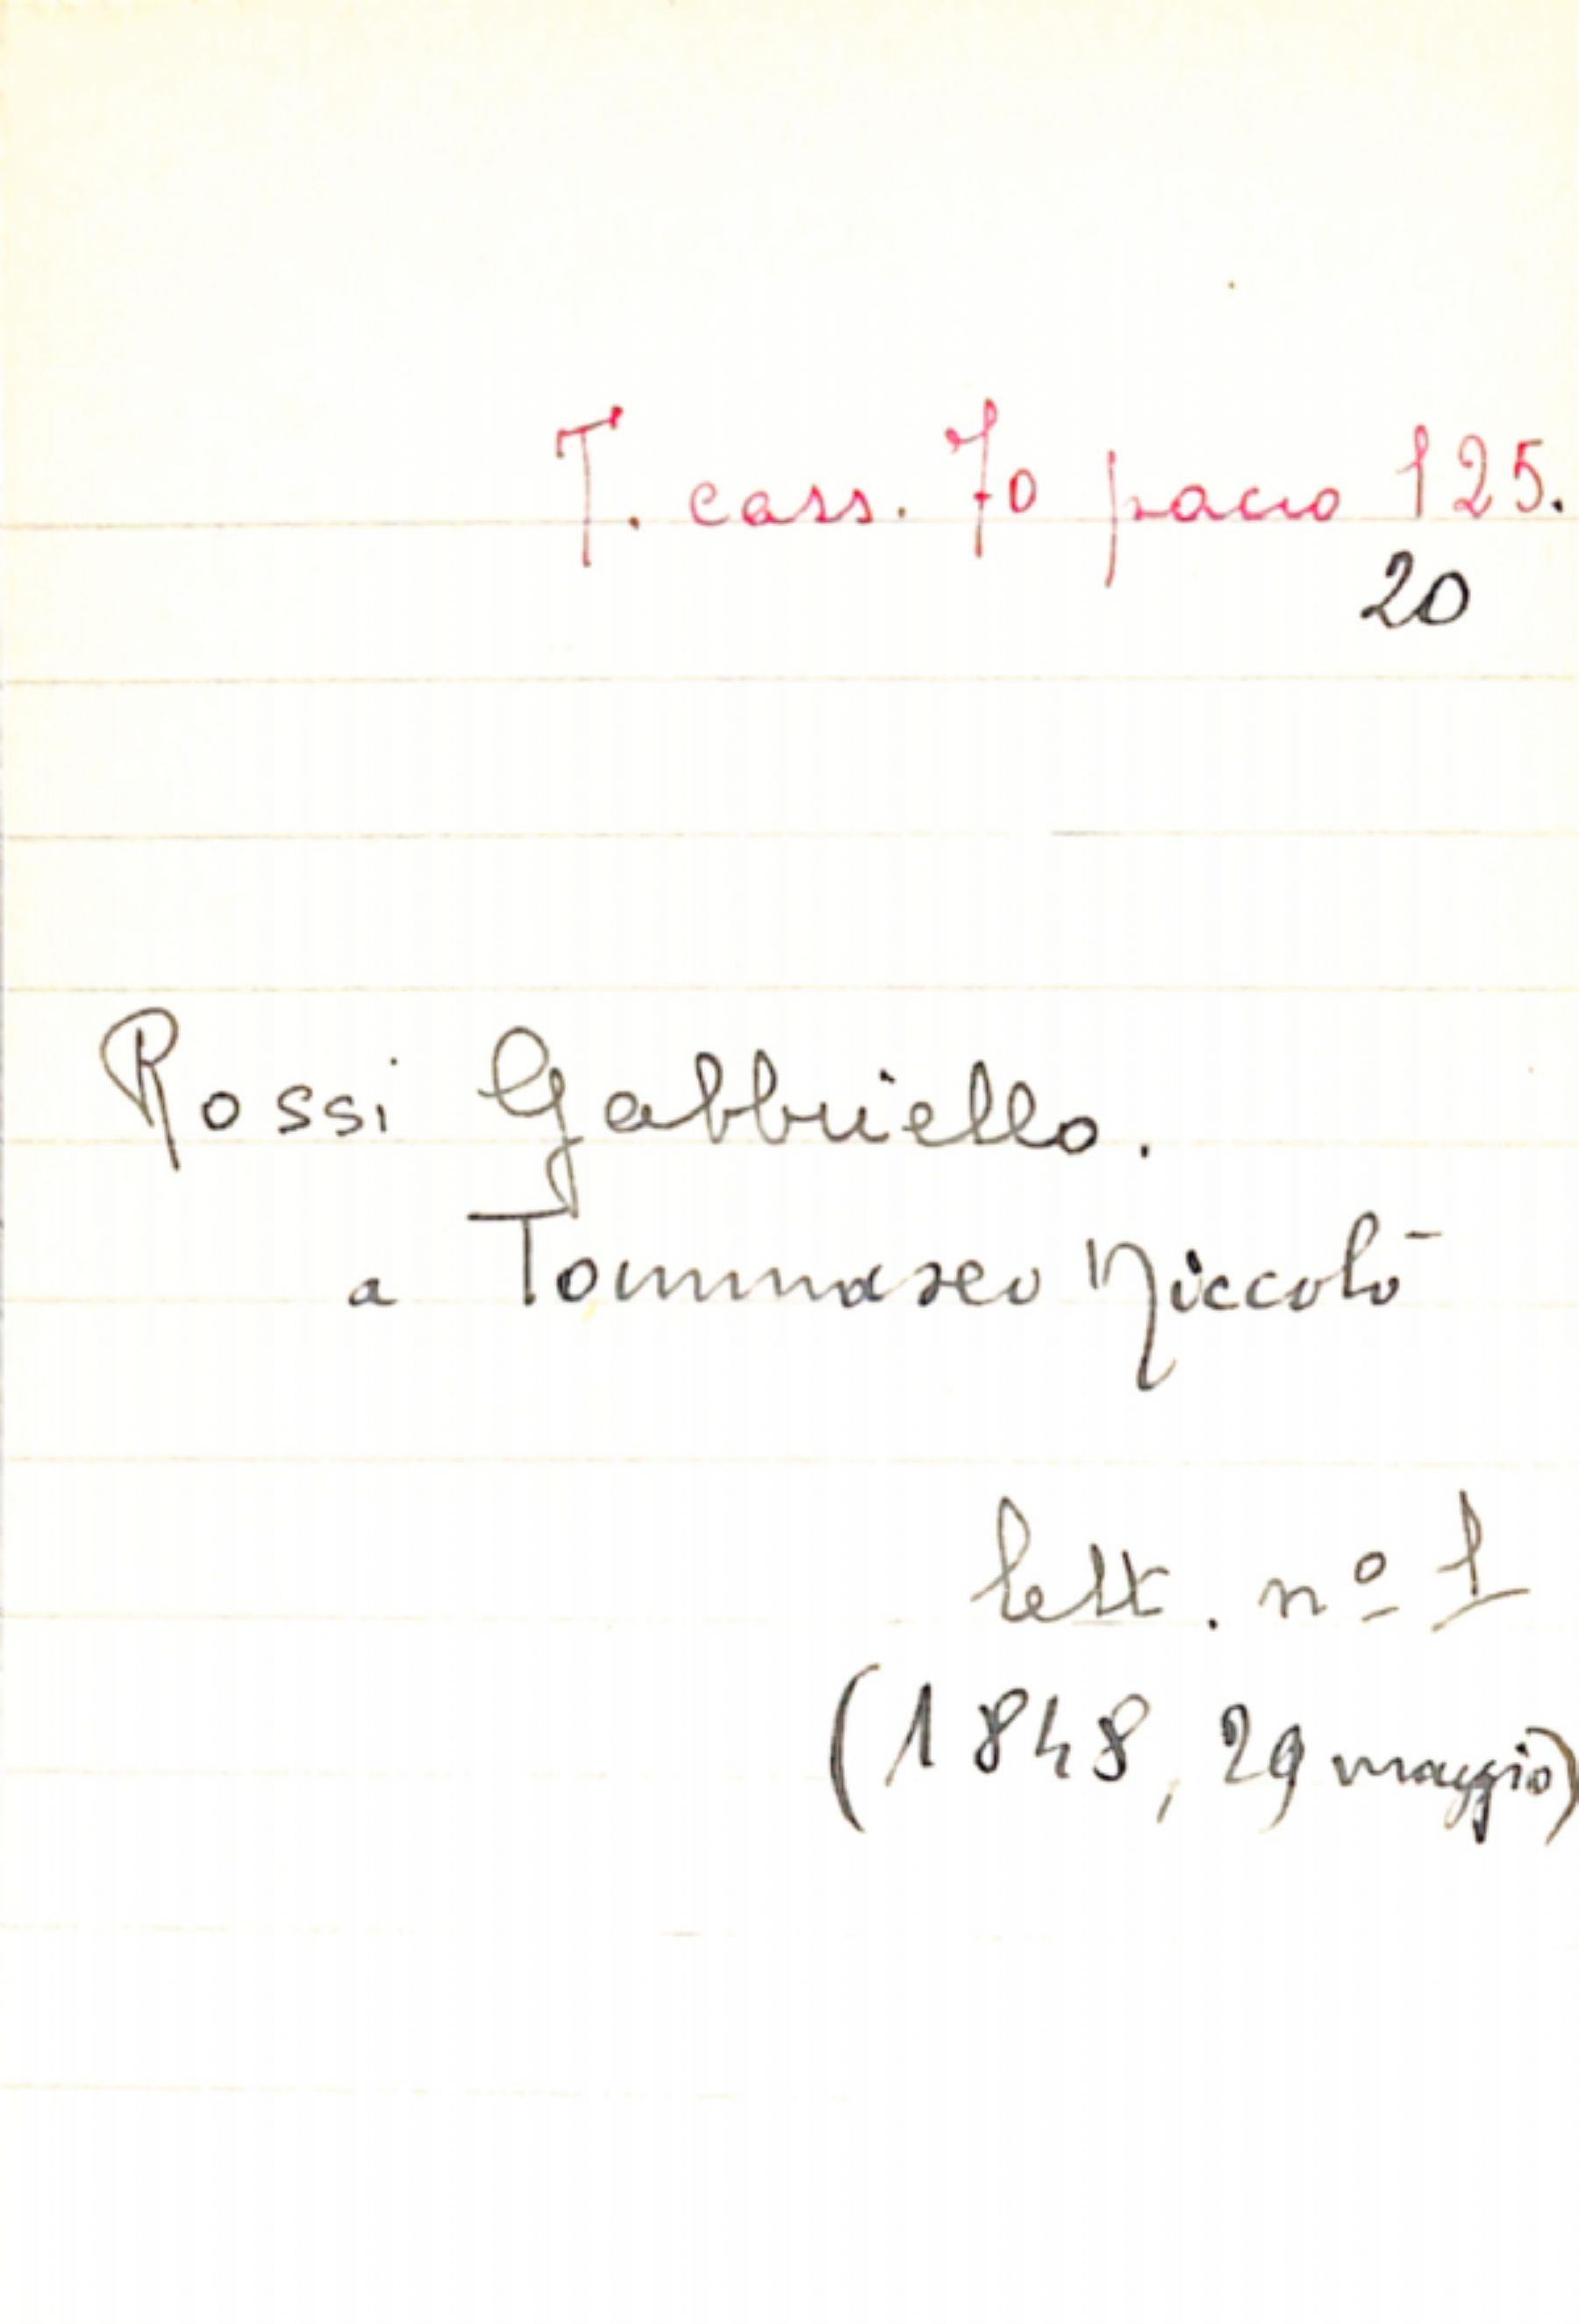 T. cass. 70 pacco 125.
20
Rossi Gabbriello.
a Tommaseo Niccolò
lett. nº 1
(1848, 29 maggio)